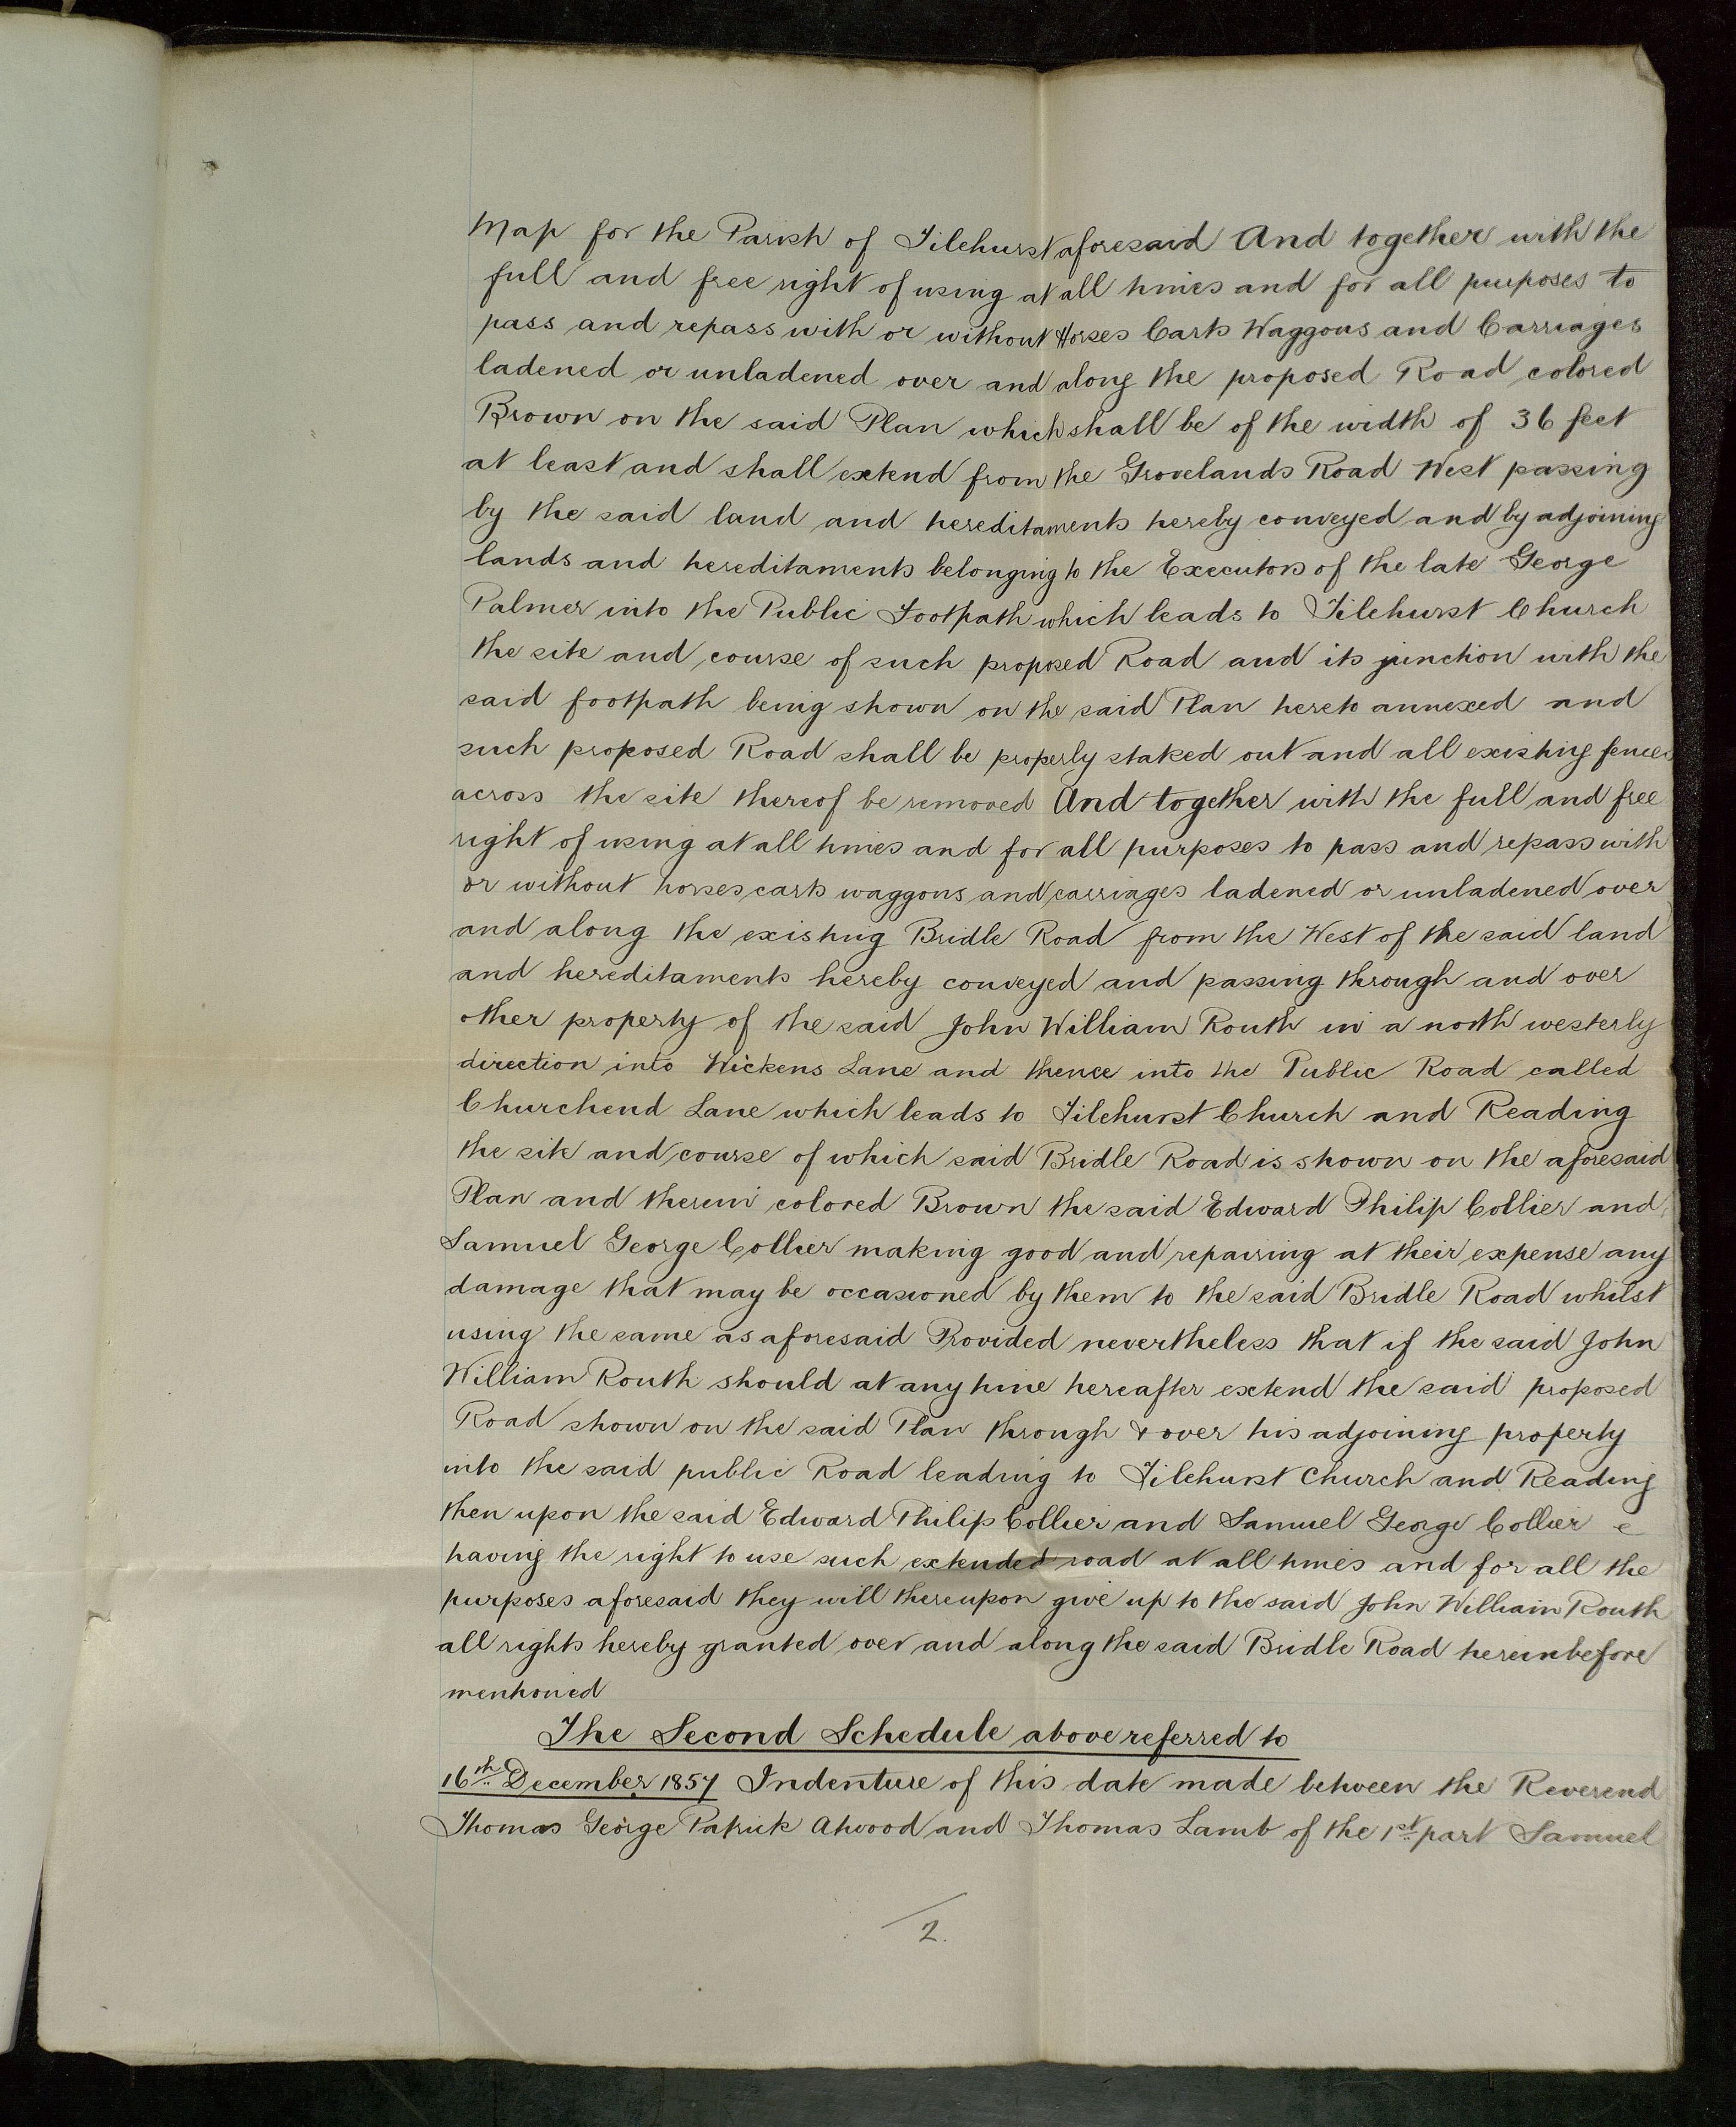 Map for the Parish of Tilehurst aforesaid And together with the
full and free right of using at all times and for all purposes to
pass and repass with or without Horses Carts Waggons and Carriages
ladened or unladened over and along the proposed Road colored
Brown on the said Plan which shall be of the width of 36 feet
at least and shall extend from the Grovelands Road West passing
by the said land and hereditaments hereby conveyed and by adjoining
lands and hereditaments belonging to the Executors of the late George
Palmer into the Public Footpath which leads to Tilehurst Church
the site and course of such proposed Road and its junction with the
said footpath being shown on the said Plan hereto annexed and
such proposed Road shall be properly staked out and all existing fences
across the site thereof be removed And together with the full and free
right of using at all times and for all purposes to pass and repass with
or without horses carts waggons and carriages ladened or unladened over
and along the existing Bridle Road from the West of the said land
and hereditaments hereby conveyed and passing through and over
other property of the said John William Routh in a north westerly
direction into Wickens Lane and thence into the Public Road called
Churchend Lane which leads to Tilehurst Church and Reading
the site and course of which said Bridle Road is shown on the aforesaid
Plan and therein colored Brown the said Edward Philip Collier and
Samuel George Collier making good and repairing at their expense any
damage that may be occasioned by them to the said Bridle Road whilst
using the same as aforesaid Provided nevertheless that if the said John
William Routh should at any time hereafter extend the said proposed
Road shown on the said Plan through & over his adjoining property
into the said public Road leading to Tilehurst Church and Reading
then upon the said Edward Philip Collier and Samuel George Collier
having the right to use such extended road at all times and for all the
purposes aforesaid they will thereupon give up to the said John William Routh
all rights hereby granted over and along the said Bridle Road hereinbefore
mentioned
The Second Schedule above referred to
16th December 1857 Indenture of this date made between the Reverend
Thomas George Patrick Atwood and Thomas Lamb of the 1st part Samuel
2.